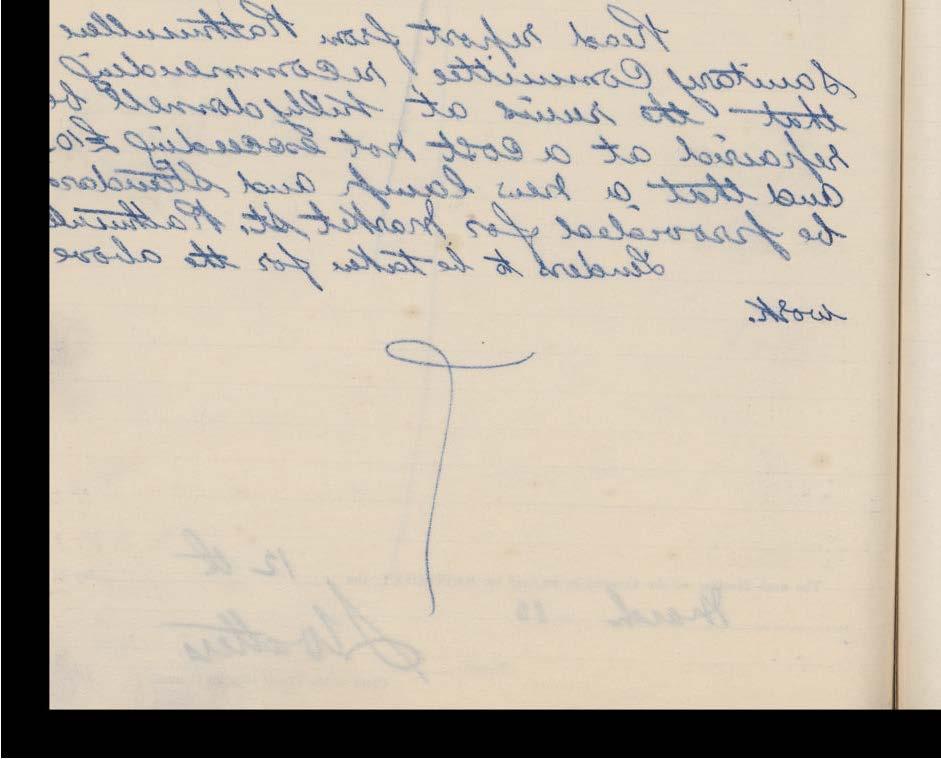 Read report from Rathmullen
Sanitary Committee recommending
that the ruins at Killydonnell be
repaired at a cost not Exceeding £10
and that a new lamp and Standard
be provided for Market St. Rathmullen
Tenders to be taken for the above
work.
12 th
March 19